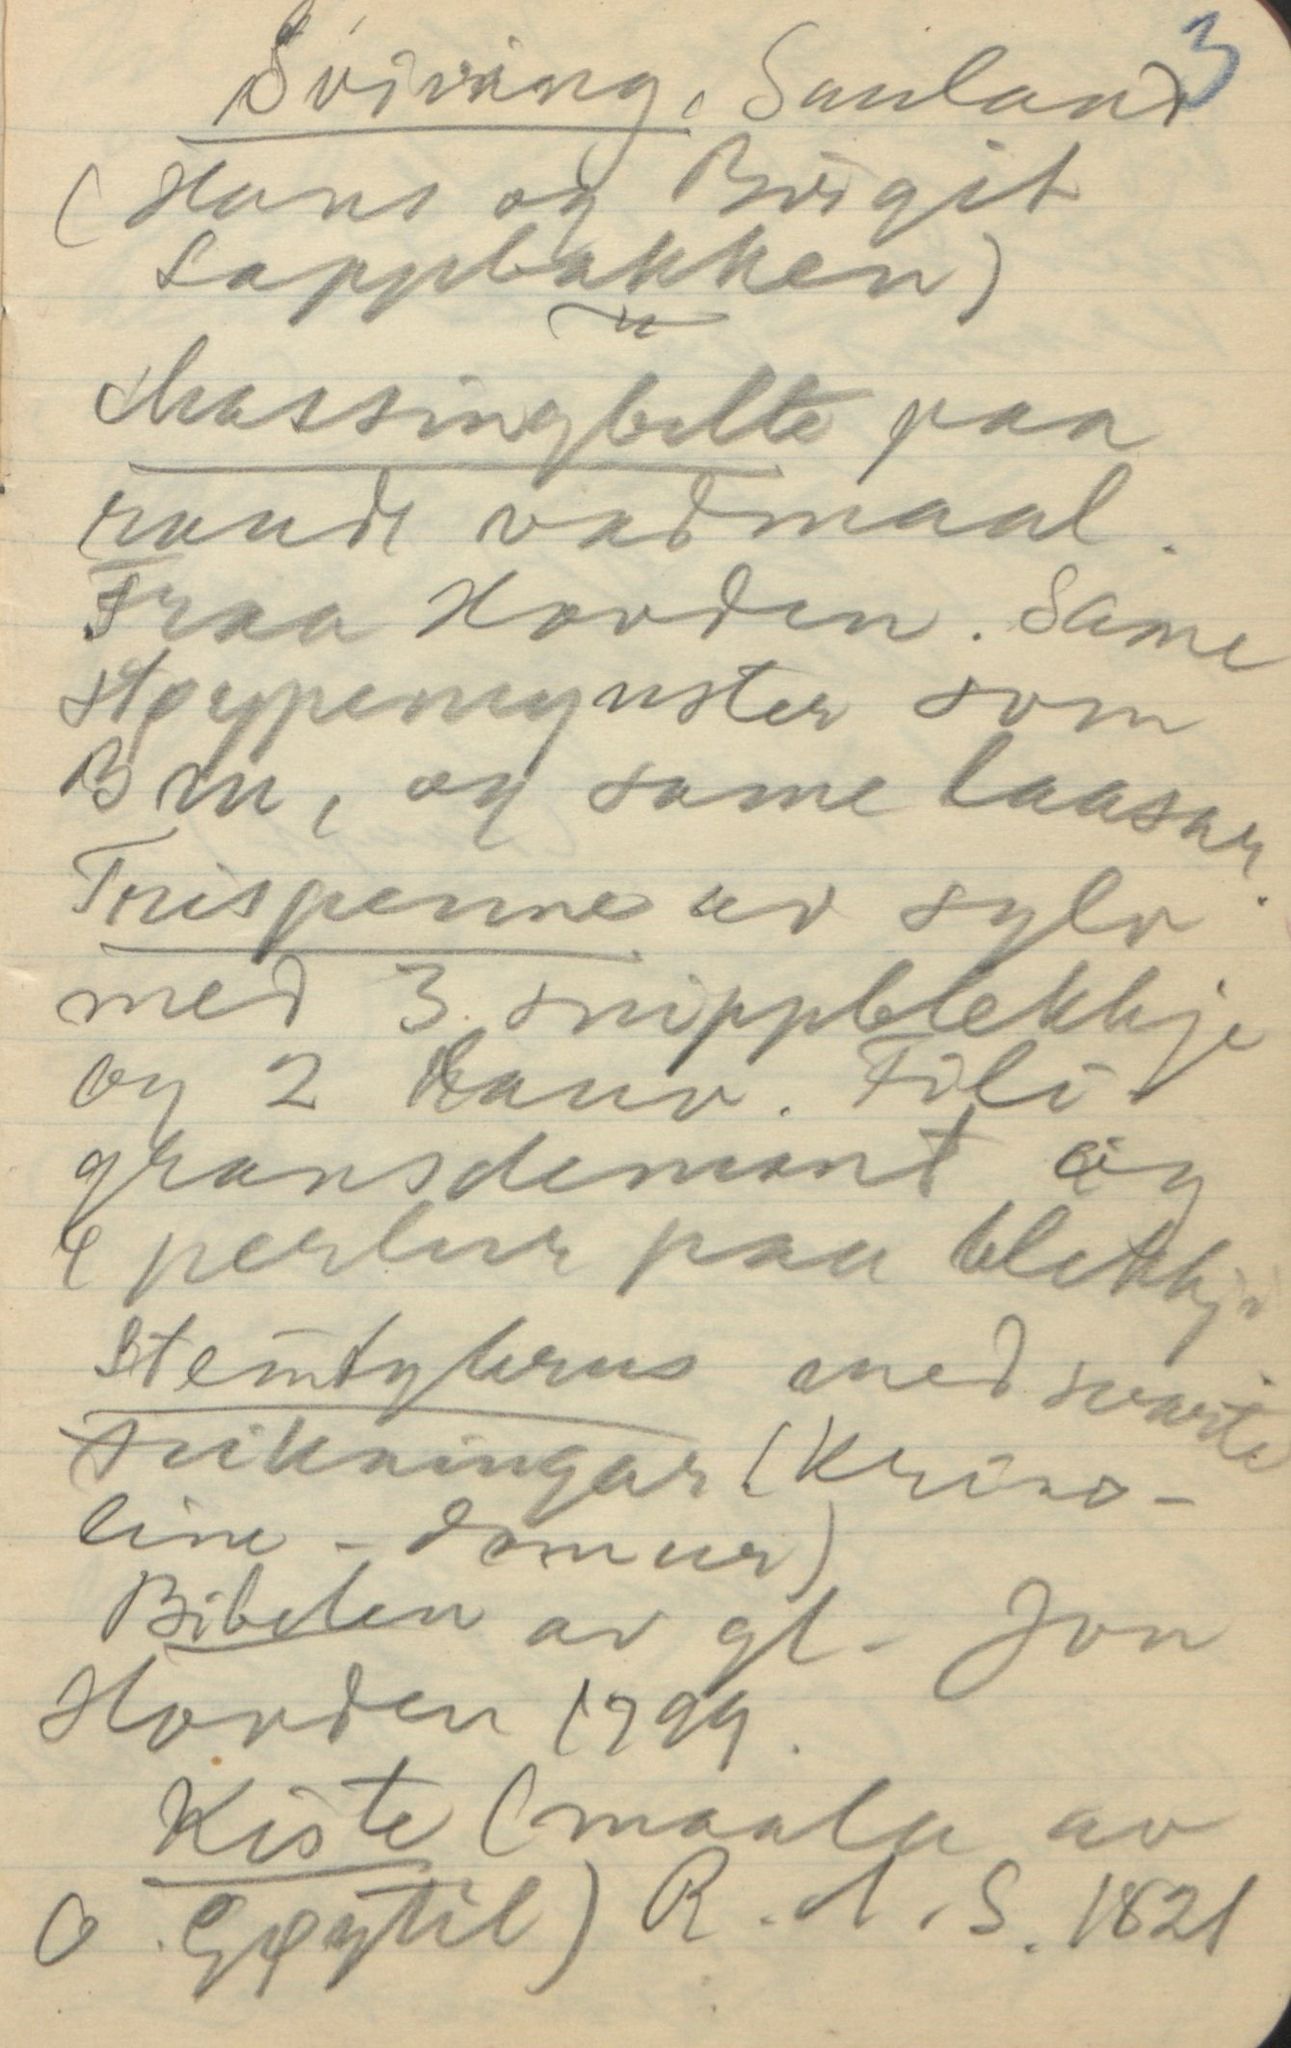 3
Svining, Sauland
(Hans og Birgit
Lappbakken)
Massingbelte paa
raudt vadmaal.
Fraa Hovden. Same
støypemynster som
B m, og same laasar.
Trispenne av sylv
med 3 snippblekkje
og 2 lauv. Fili-
gransdemant og
4 perlur paa blekkje
Steintykrus med svarte
teikningar (Krino-
line-damur)
Bibelen av gl. Jon
Hovden 1799.
Kiste (maala av
O. Gøytil) R. A. S. 1821